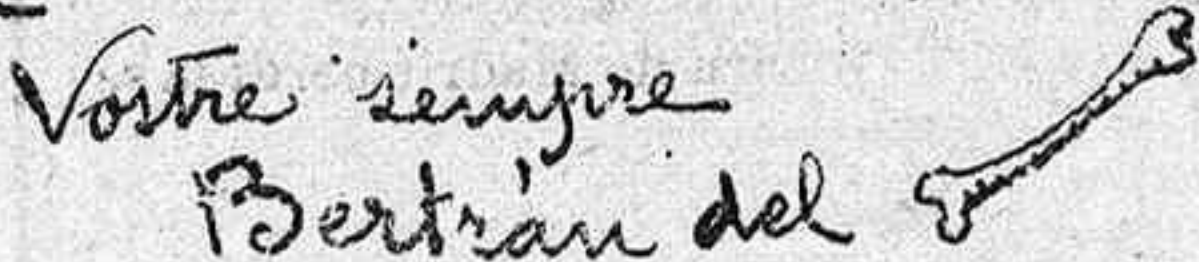 Vostre sempre
Bertrán del